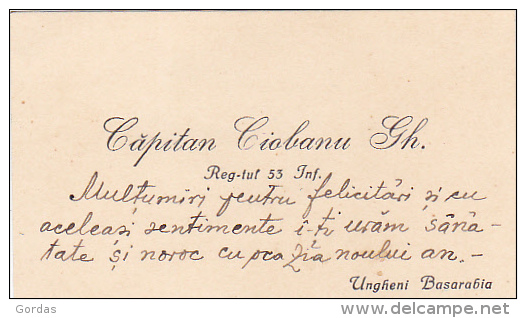 Căpitan Ciobanu Gh.
Reg-tul 53 Inf.
Mulțumiri pentru felicitări și cu
aceleași sentimente î-ți urăm sănă-
tate și noroc cu ocazia noului an. -
Ungheni Basarabia
Gordas
www.delcampe.net